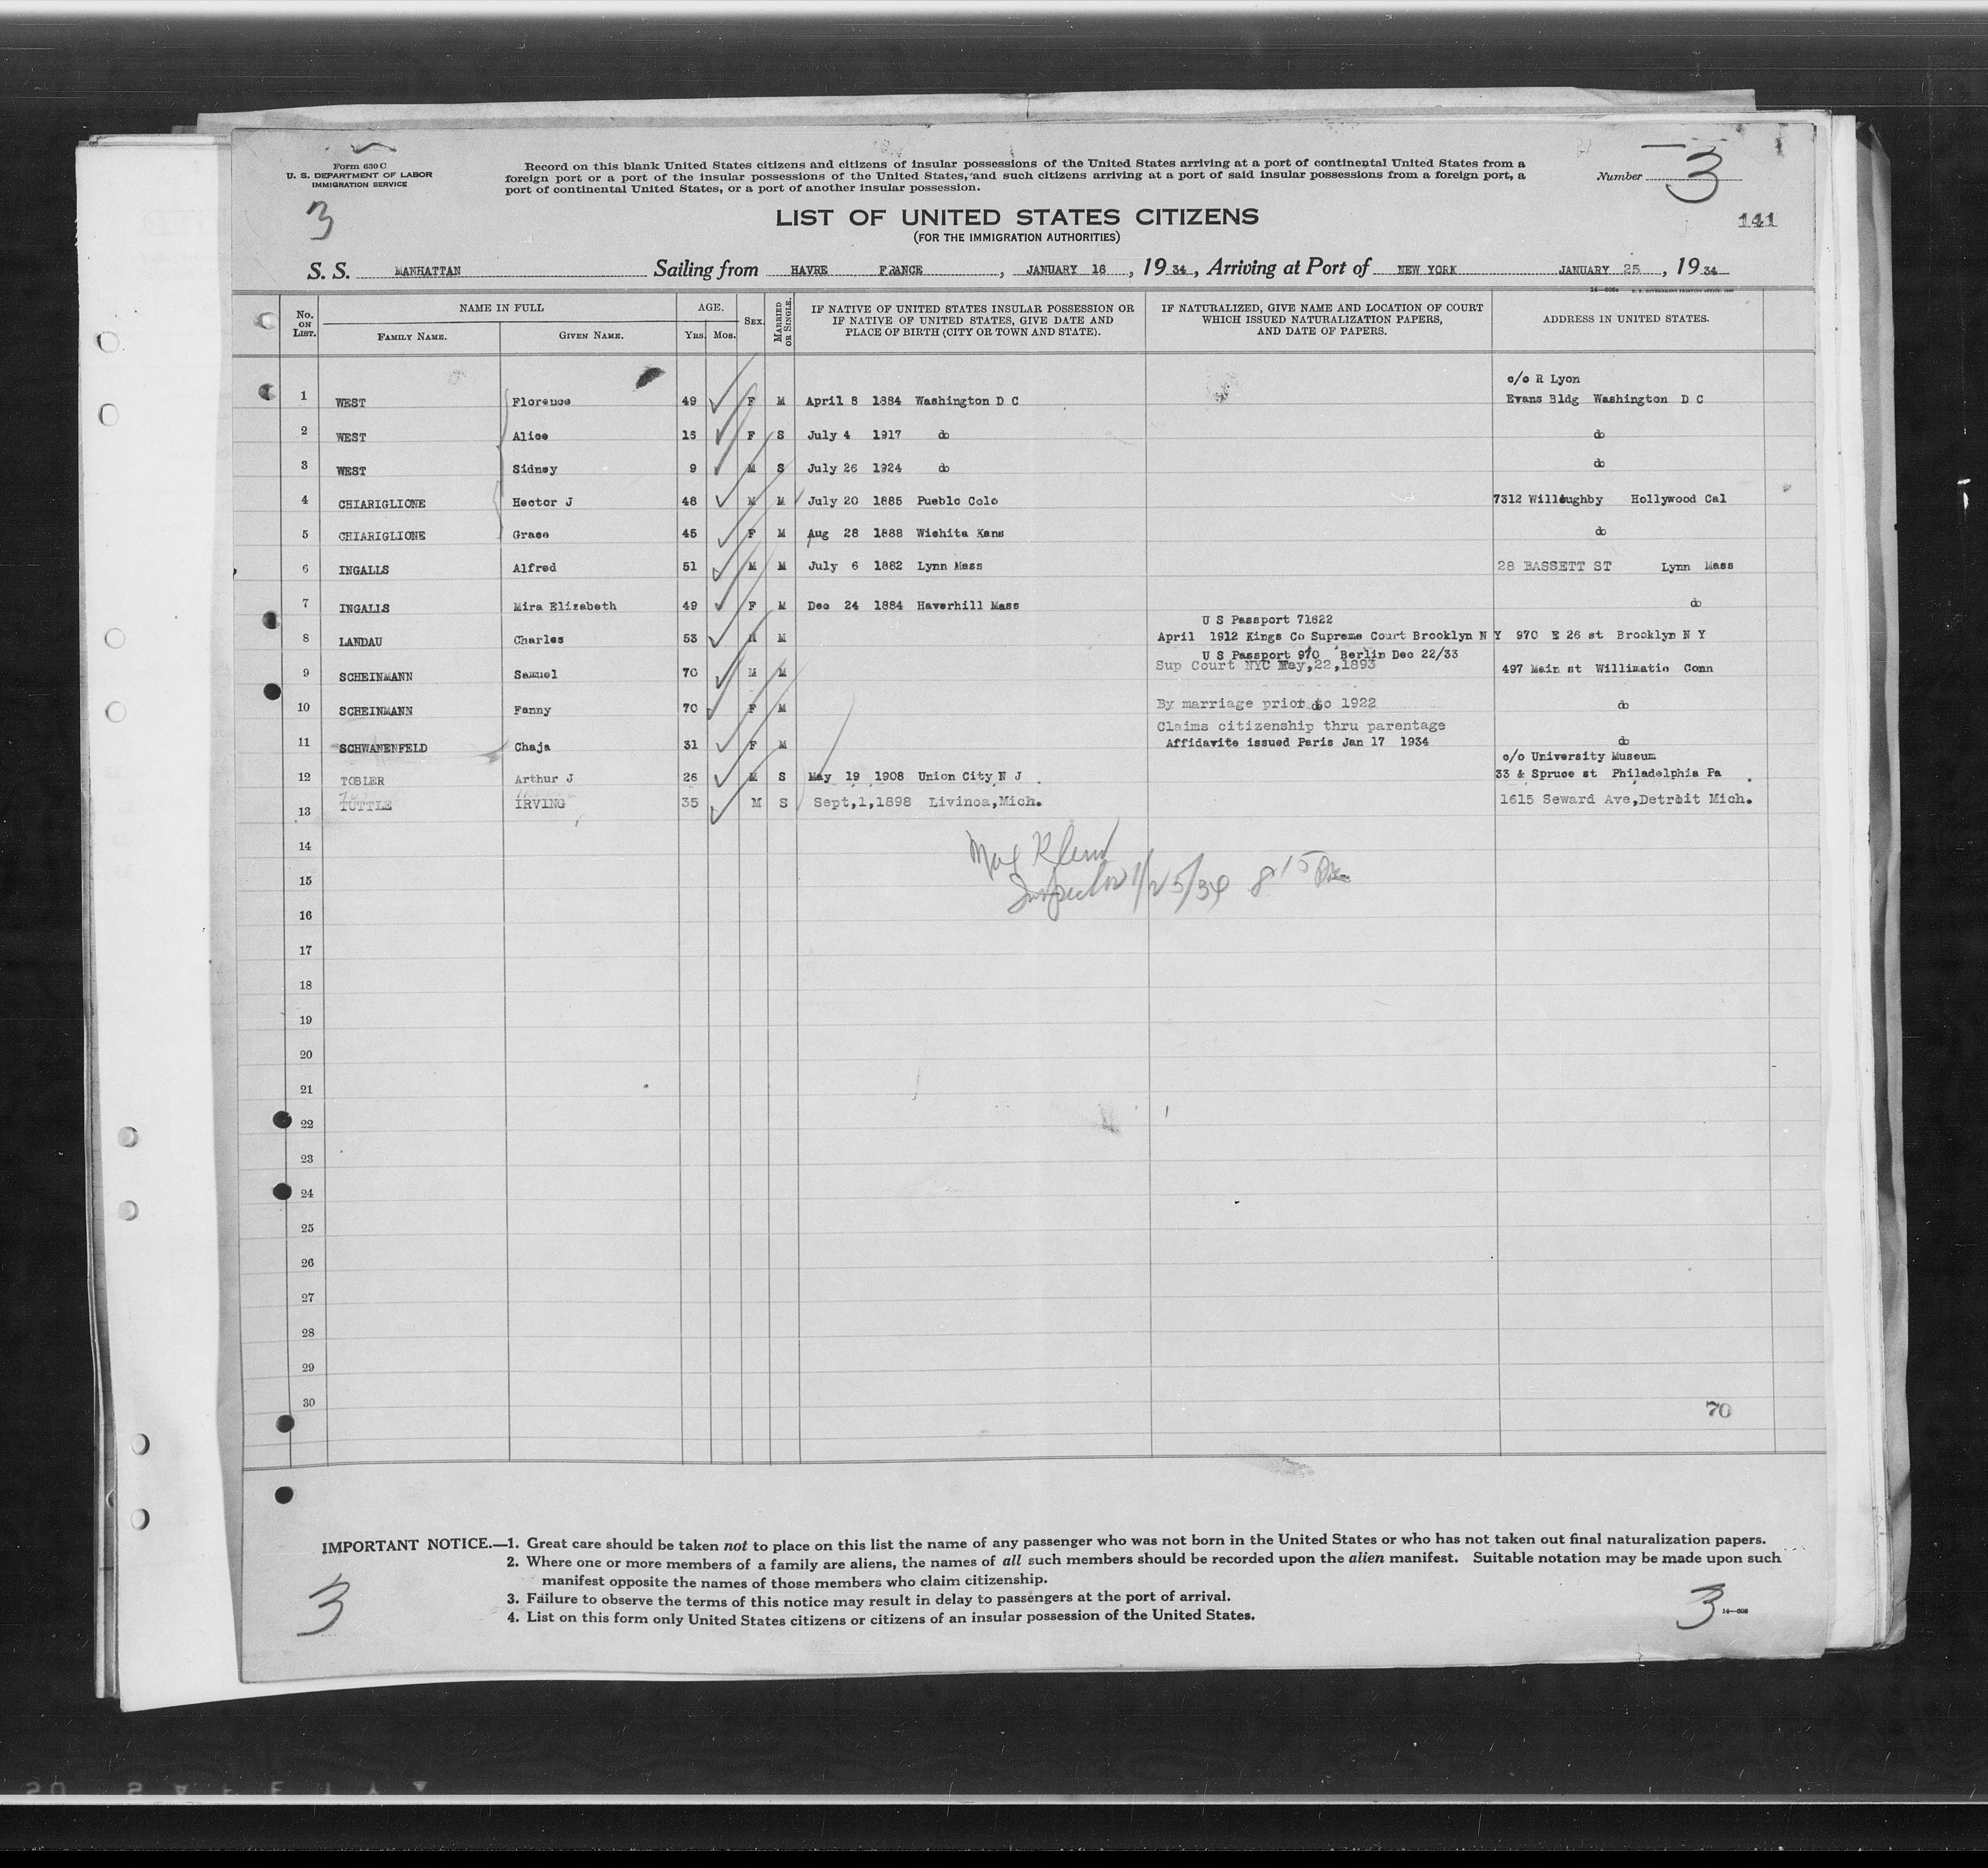 Form 630 C
U. S. DEPARTMENT OF LABOR
IMMIGRATION SERVICE
3
Record on this blank United States citizens and citizens of insular possessions of the United States arriving at a port of continental United States from a
foreign port or a port of the insular possessions of the United States, and such citizens arriving at a port of said insular possessions from a foreign port, a
port of continental United States, or a port of another insular possession.
Number 3
LIST OF UNITED STATES CITIZENS
(FOR THE IMMIGRATION AUTHORITIES)
141
S. S. MANHATTAN Sailing from HAVRE FRANCE , JANUARY 18 , 19 34 , Arriving at Port of NEW YORK JANUARY 25 , 19 34
No. ON LIST. NAME IN FULL FAMILY NAME. GIVEN NAME. AGE. YRS. MOS. SEX. MARRIED OR SINGLE.
IF NATIVE OF UNITED STATES INSULAR POSSESSION OR
IF NATIVE OF UNITED STATES, GIVE DATE AND
PLACE OF BIRTH (CITY OR TOWN AND STATE).
IF NATURALIZED, GIVE NAME AND LOCATION OF COURT
WHICH ISSUED NATURALIZATION PAPERS,
AND DATE OF PAPERS.
ADDRESS IN UNITED STATES.
c/o R Lyon
1 WEST Florence 49 F M April 8 1884 Washington D C Evans Bldg Washington D C
2 WEST Alice 16 F S July 4 1917 do do
3 WEST Sidney 9 M S July 26 1924 do do
4 CHIARIGLIONE Hector J 48 M M July 20 1885 Pueblo Colo 7312 Willoughby Hollywood Cal
5 CHIARIGLIONE Grace 45 F M Aug 28 1888 Wichita Kans do
6 INGALLS Alfred 51 M M July 6 1882 Lynn Mass 28 BASSETT ST Lynn Mass
7 INGALLS Mira Elizabeth 49 F M Dec 24 1884 Haverhill Mass do
U S Passport 71622
8 LANDAU Charles 53 M M April 1912 Kings Co Supreme Court Brooklyn N Y 970 E 26 st Brooklyn N Y
U S Passport 970 Berlin Dec 22/33
9 SCHEINMANN Samuel 70 M M Sup Court NYC May,22,1893 497 Main st Willimatic Conn
10 SCHEINMANN Fanny 70 F M By marriage prior to 1922 do
Claims citizenship thru parentage
11 SCHWANENFELD Chaja 31 F M Affidavite issued Paris Jan 17 1934 do
c/o University Museum
12 TOBLER Arthur J 26 M S May 19 1908 Union City N J 33 & Spruce st Philadelphia Pa
13 TUTTLE IRVING 35 M S Sept,1,1898 Livinoa,Mich. 1615 Seward Ave,Detroit Mich.
14
15
Inspector 1/25/34 8 15
16
17
18
19
20
21
22
23
24
25
26
27
28
29
30
70
IMPORTANT NOTICE.—1. Great care should be taken not to place on this list the name of any passenger who was not born in the United States or who has not taken out final naturalization papers.
2. Where one or more members of a family are aliens, the names of all such members should be recorded upon the alien manifest. Suitable notation may be made upon such
manifest opposite the names of those members who claim citizenship.
3. Failure to observe the terms of this notice may result in delay to passengers at the port of arrival.
4. List on this form only United States citizens or citizens of an insular possession of the United States.
3
3
14—608